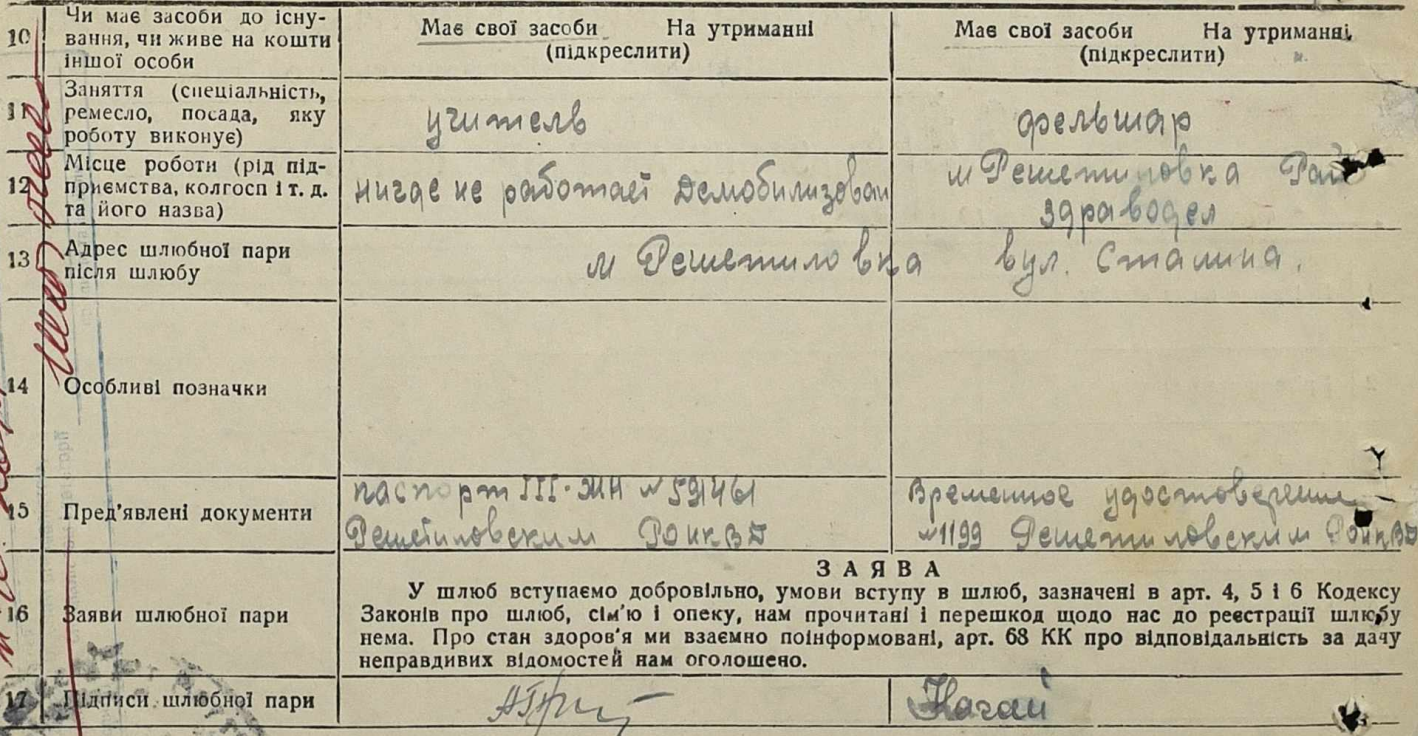 10 Чи має засоби до існу-
вання, чи живе на кошти
іншої особи
Має свої засоби На утриманні
(підкреслити)
Має свої засоби На утриманні
(підкреслити)
11 Заняття (спеціальність,
ремесло, посада, яку
роботу виконує)
учитель
фельшар
12 Місце роботи (рід під-
приємства, колгосп і т. д.
та його назва)
нигде не работает Демобилизован
м Решетиловка Рай
здраводел
13 Адрес шлюбної пари
після шлюбу
м Решетиловка вул. Сталина.
14 Особливі позначки
15 Пред'явлені документи
паспорт III-МН № 591461
Решетиловским РОНКВД
Временное удостоверение
№1199 Решетиловским РОНКВД
16 Заяви шлюбної пари
ЗАЯВА
У шлюб вступаємо добровільно, умови вступу в шлюб, зазначені в арт. 4, 5 і 6 Кодексу
Законів про шлюб, сім'ю і опеку, нам прочитані і перешкод щодо нас до реєстрації шлюбу
нема. Про стан здоров'я ми взаємно поінформовані, арт. 68 КК про відповідальність за дачу
неправдивих відомостей нам оголошено.
17 Підписи шлюбної пари
Нагай